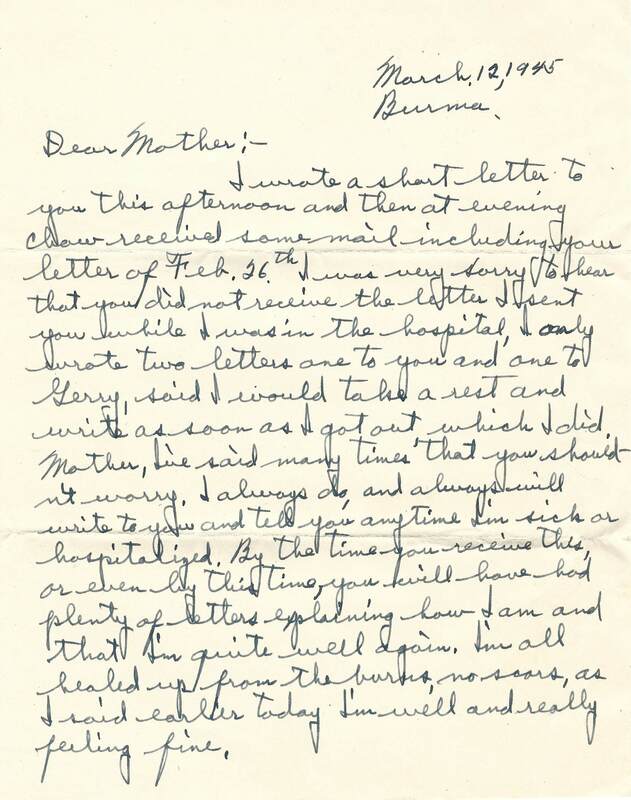 March 12, 1945
Burma.
Dear Mother:-
I wrote a short letter to
you this afternoon and then at evening
chow received some mail including your
letter of Feb. 26.th I was very sorry to hear
that you did not receive the letter I sent
you while I was in the hospital, I only
wrote two letters one to you and one to
Gerry, said I would take a rest and
write as soon as I got out which I did.
Mother, I've said many times that you should-
n't worry. I always do, and always will
write to you and tell you anytime I'm sick or
hospitalized. By the time you receive this,
or even by this time, you will have had
plenty of letters explaining how I am and
that I'm quite well again. I'm all
healed up from the burns, no scars, as
I said earlier today I'm well and really
feeling fine.